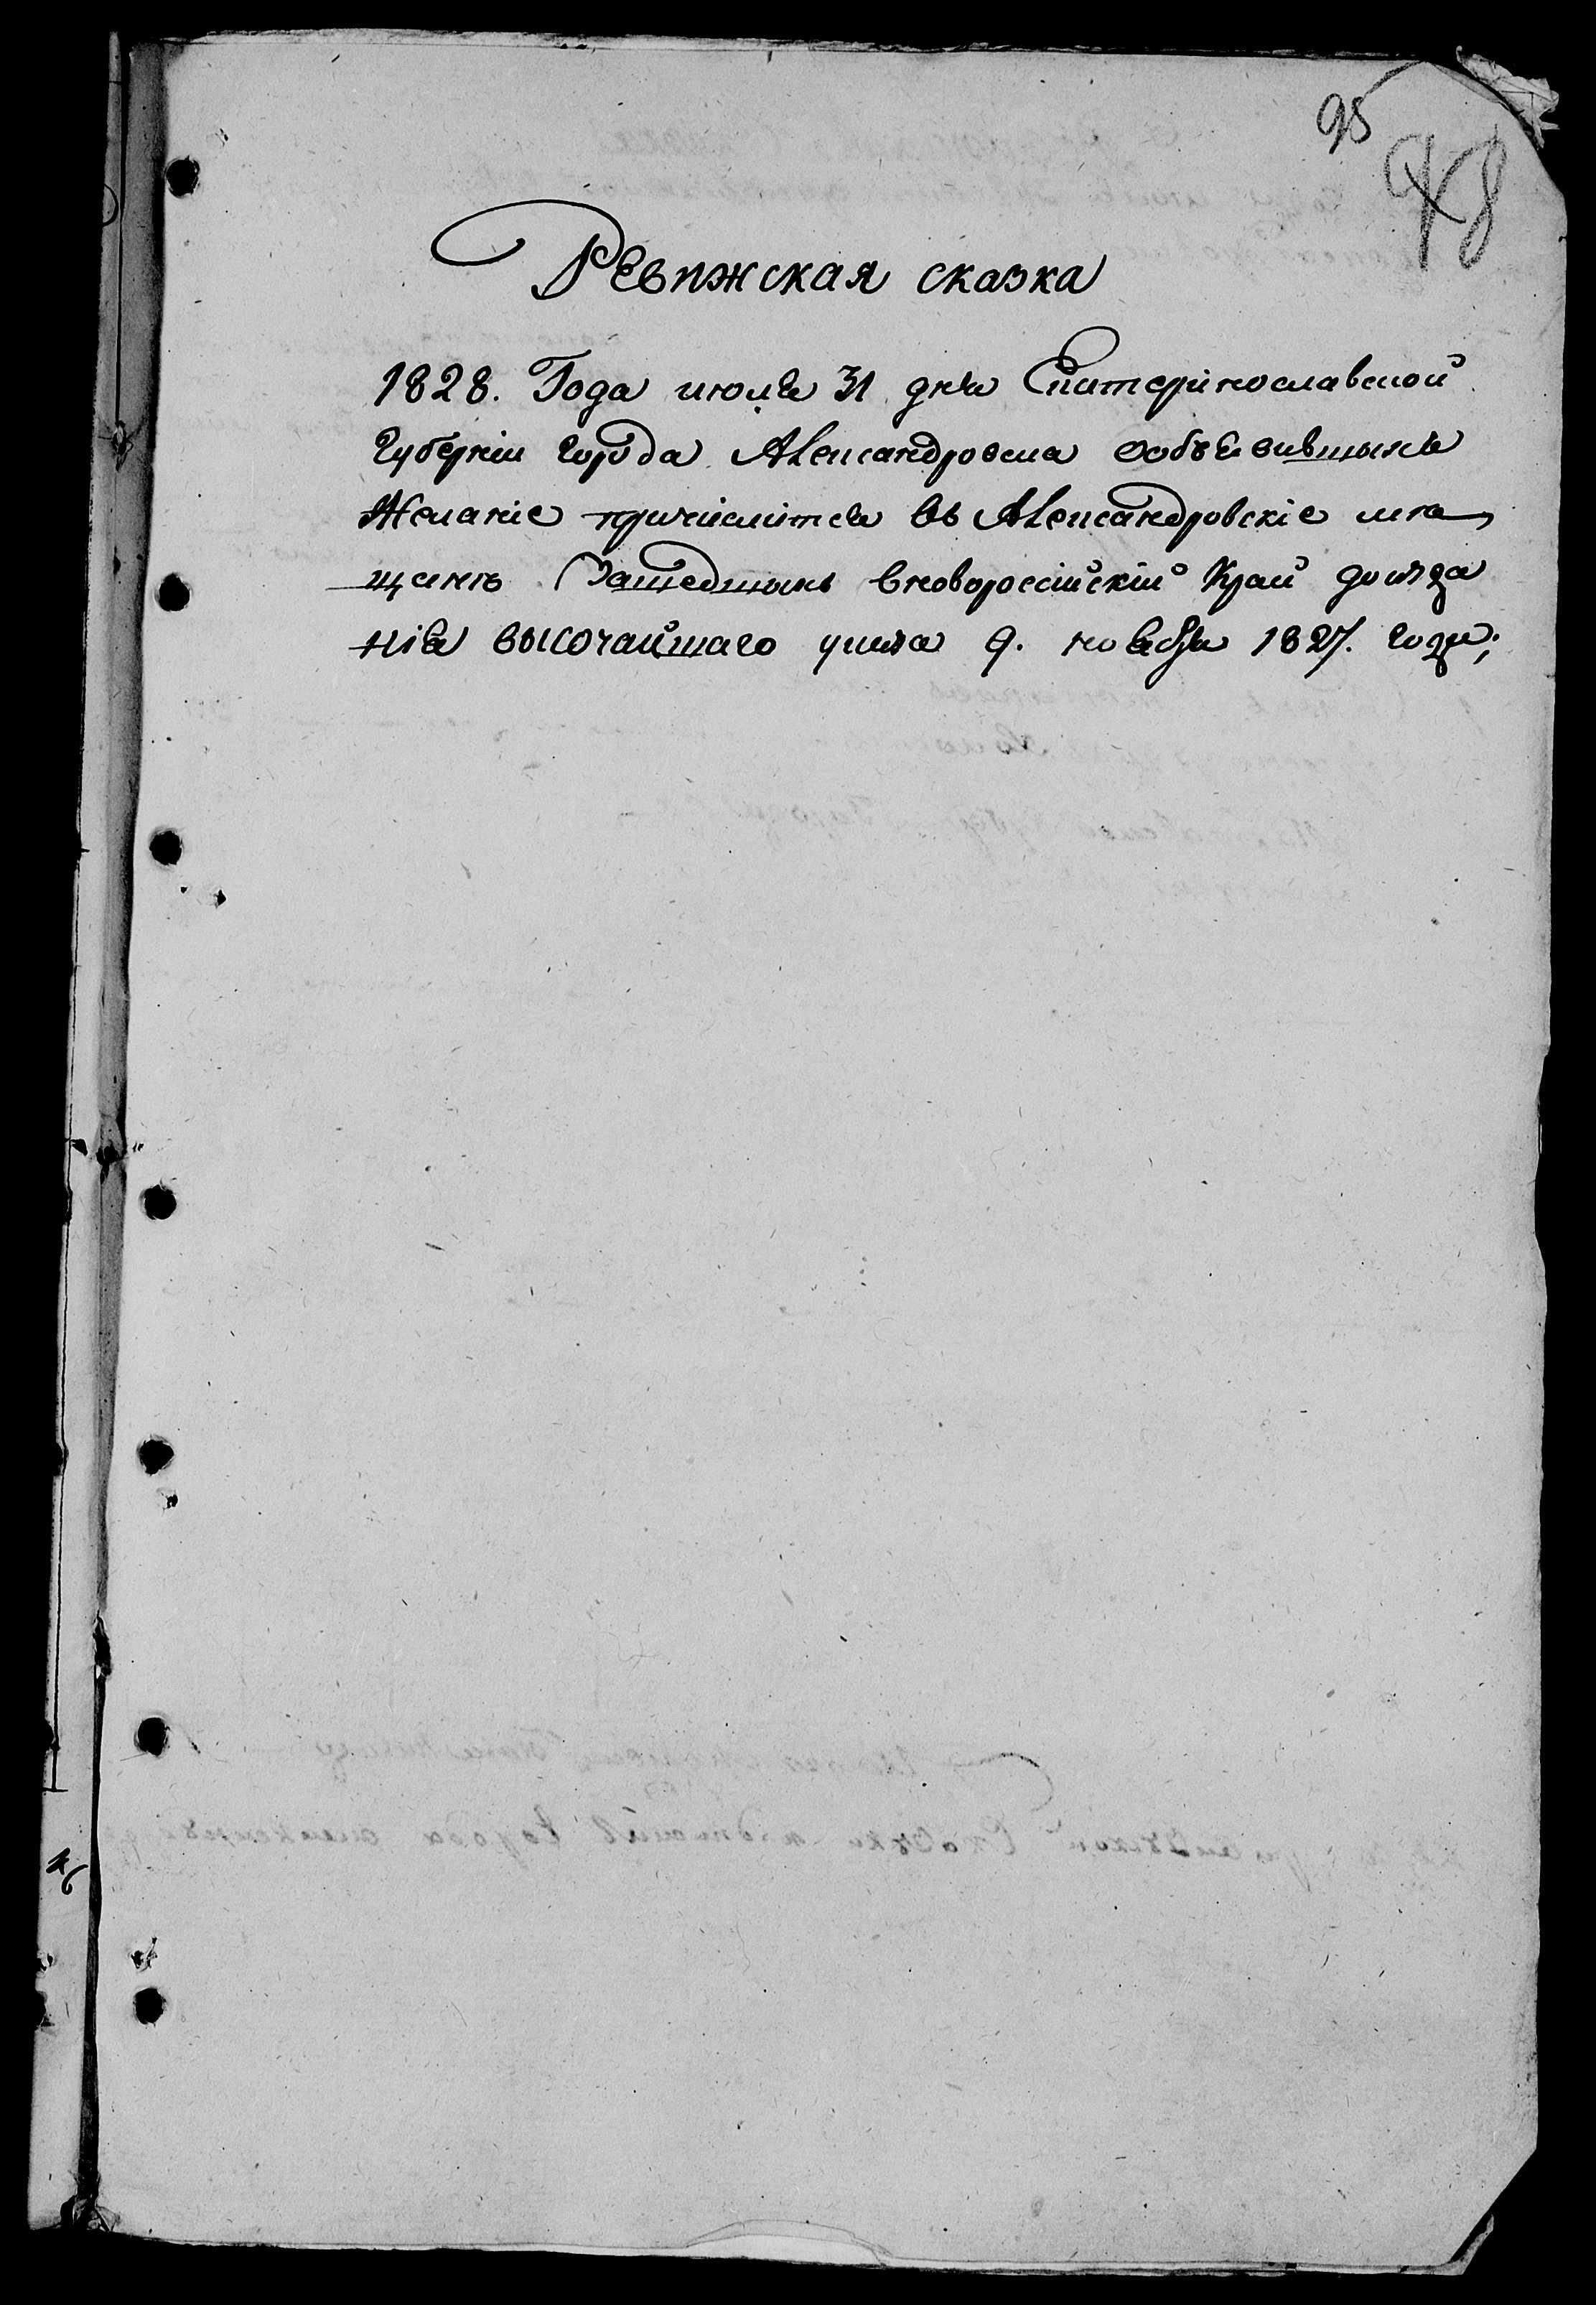 95
48
Ревижская сказка
1828. Года июля 31 дня Екатеринославской
Губерніи города Александровска ообъявившымъ
Желаніе причислится въ Александровскіе мѣ
щанѣ Зашедшымъ вновороссійскій Край доизда
нія высочайшаго указа 9. ноября 1827. года;